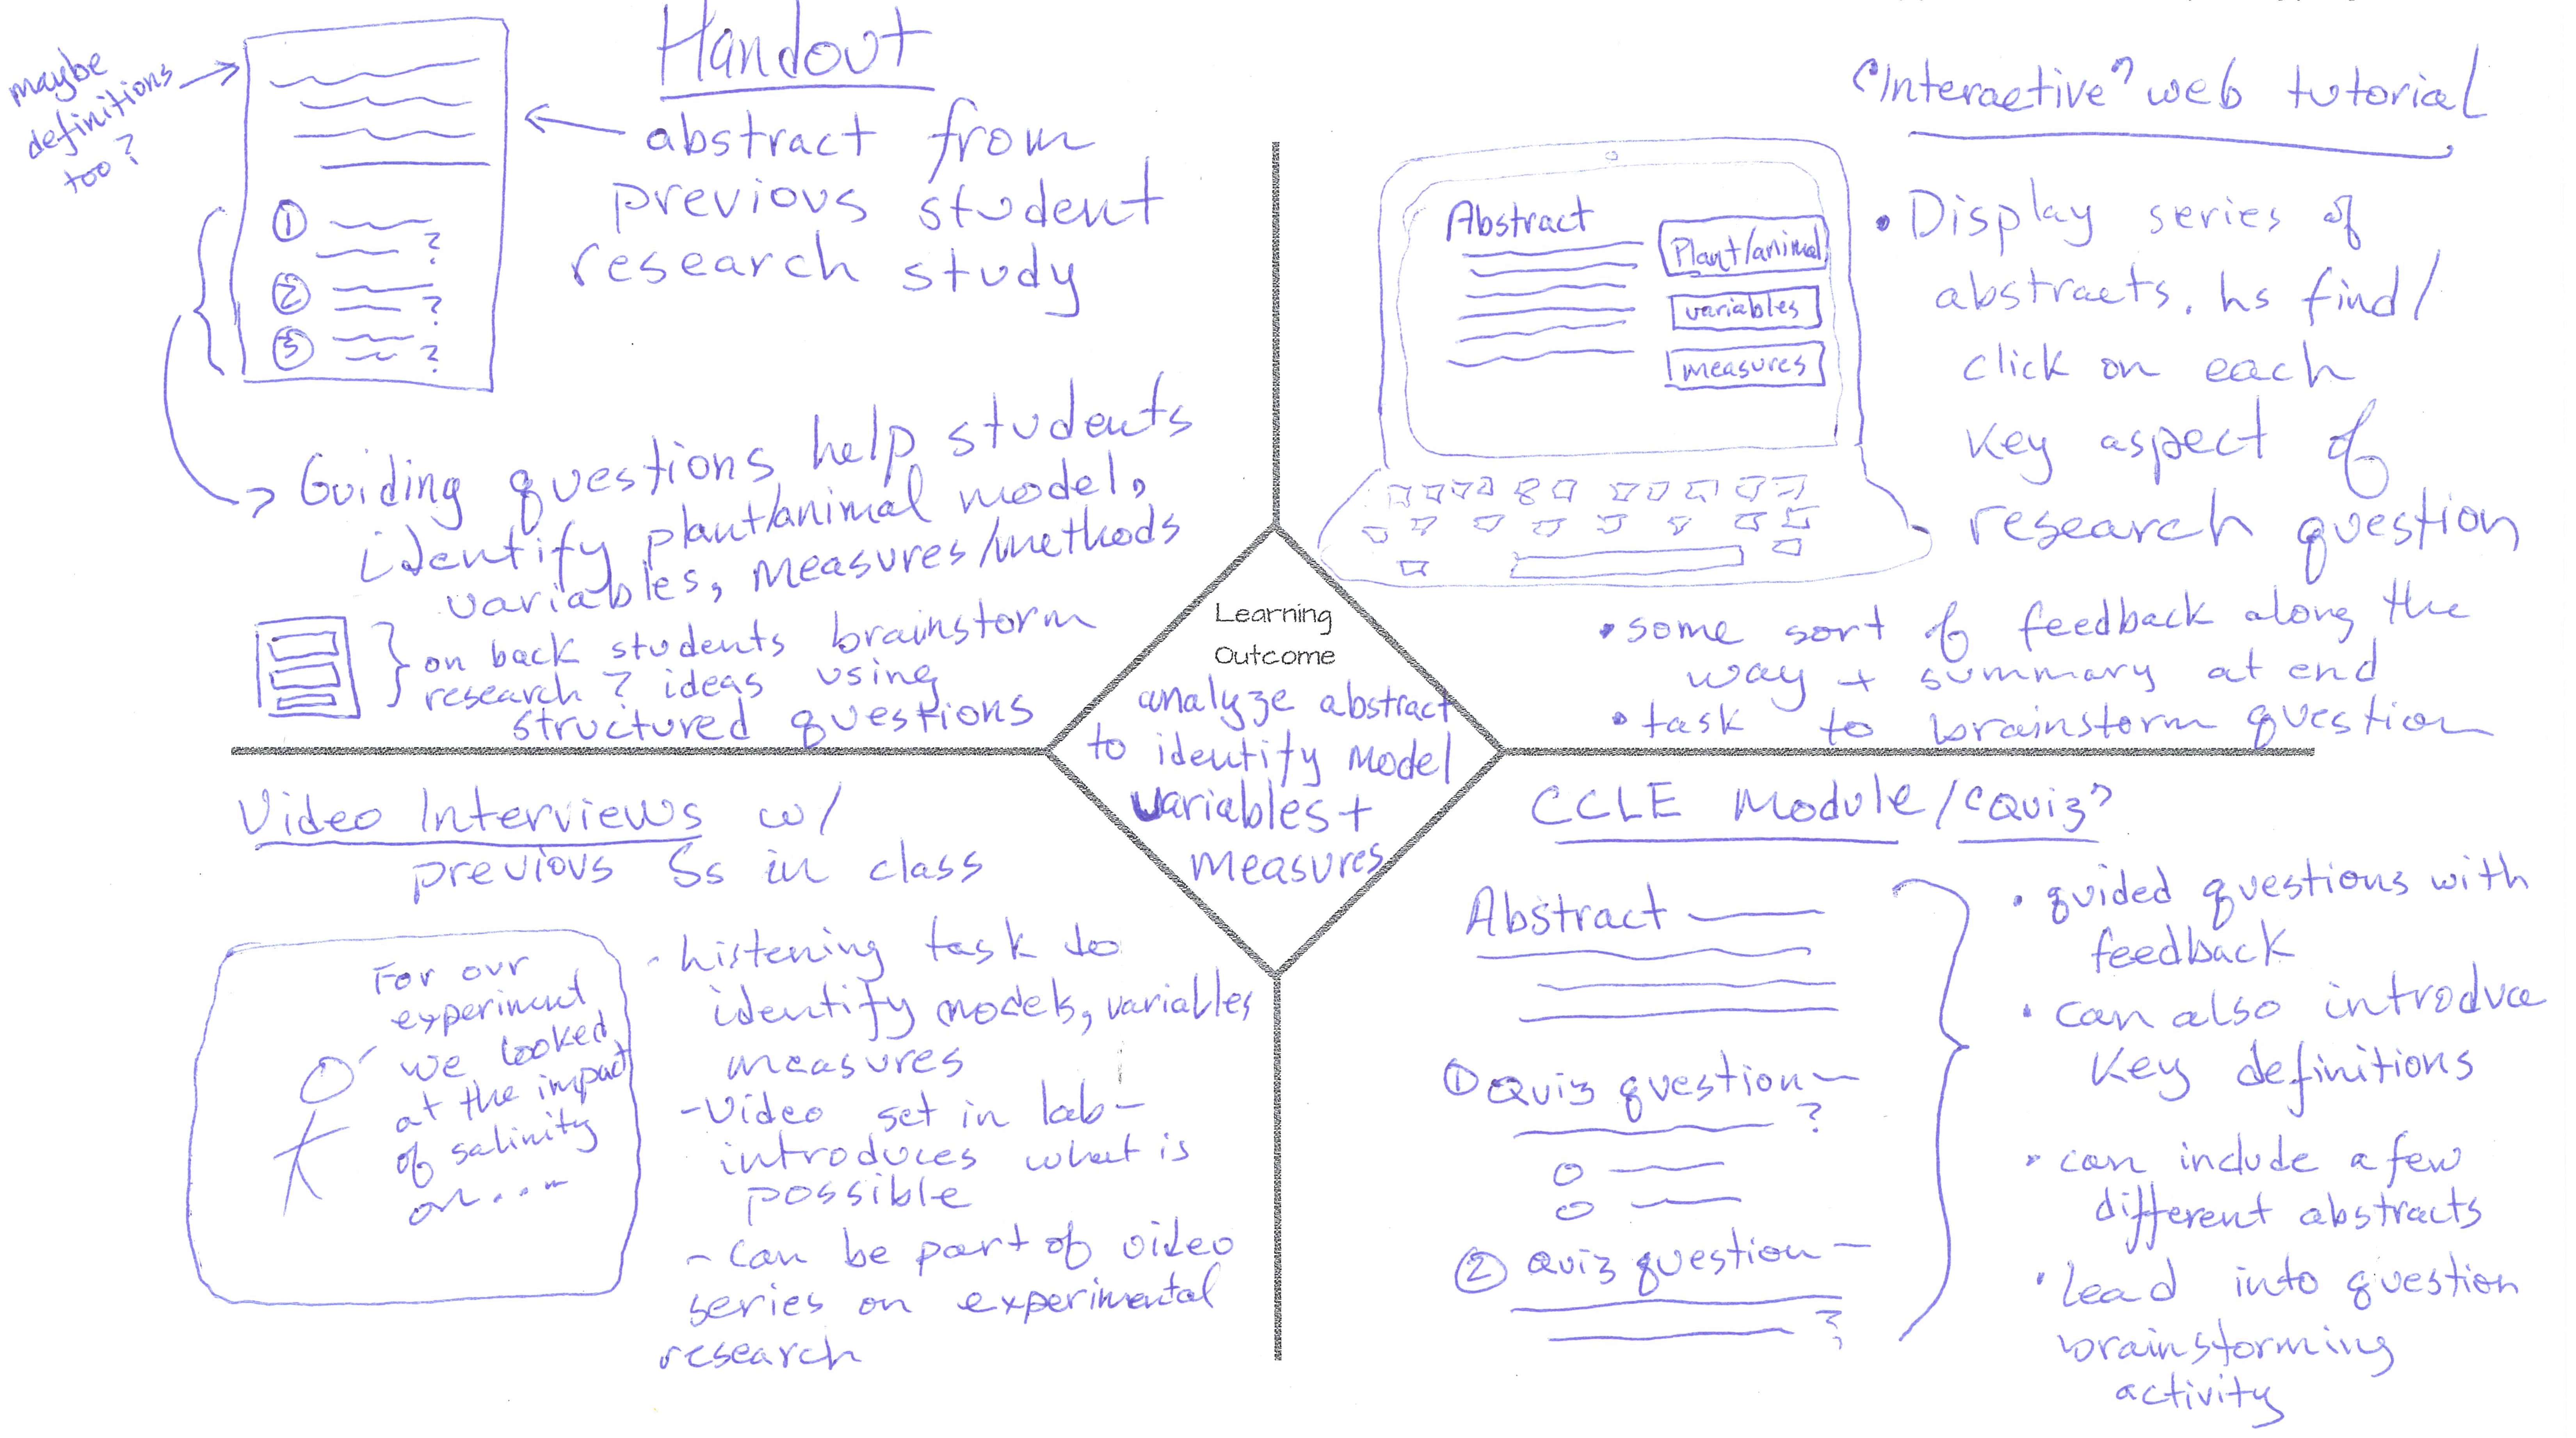 Handout
maybe
definitions
too?
abstract from
previous student
research study
①
?
②
?
③
?
Guiding questions help students
identify plant/animal model,
variables, measures/methods
on back students brainstorm
research ? ideas using
structured questions
"Interactive" web tutorial
Abstract
Plant/animal
variables
measures
• Display series of
abstracts.
find/
click on each
key aspect of
research question
• some sort of feedback along the
way + summary at end
• task to brainstorm question
Learning
Outcome
analyze abstract
to identify model
variables +
measures
Video Interviews w/
previous Ss in class
For our
experiment
we looked
at the impact
of salinity
on....
- Listening task to
identify models, variables
measures
- Video set in lab -
introduces what is
possible
- can be part of video
series on experimental
research
CCLE Module/"Quiz"
Abstract
① Quiz question
?
② Quiz question
?
• guided questions with
feedback
• can also introduce
key definitions
• can include a few
different abstracts
• Lead into question
brainstorming
activity